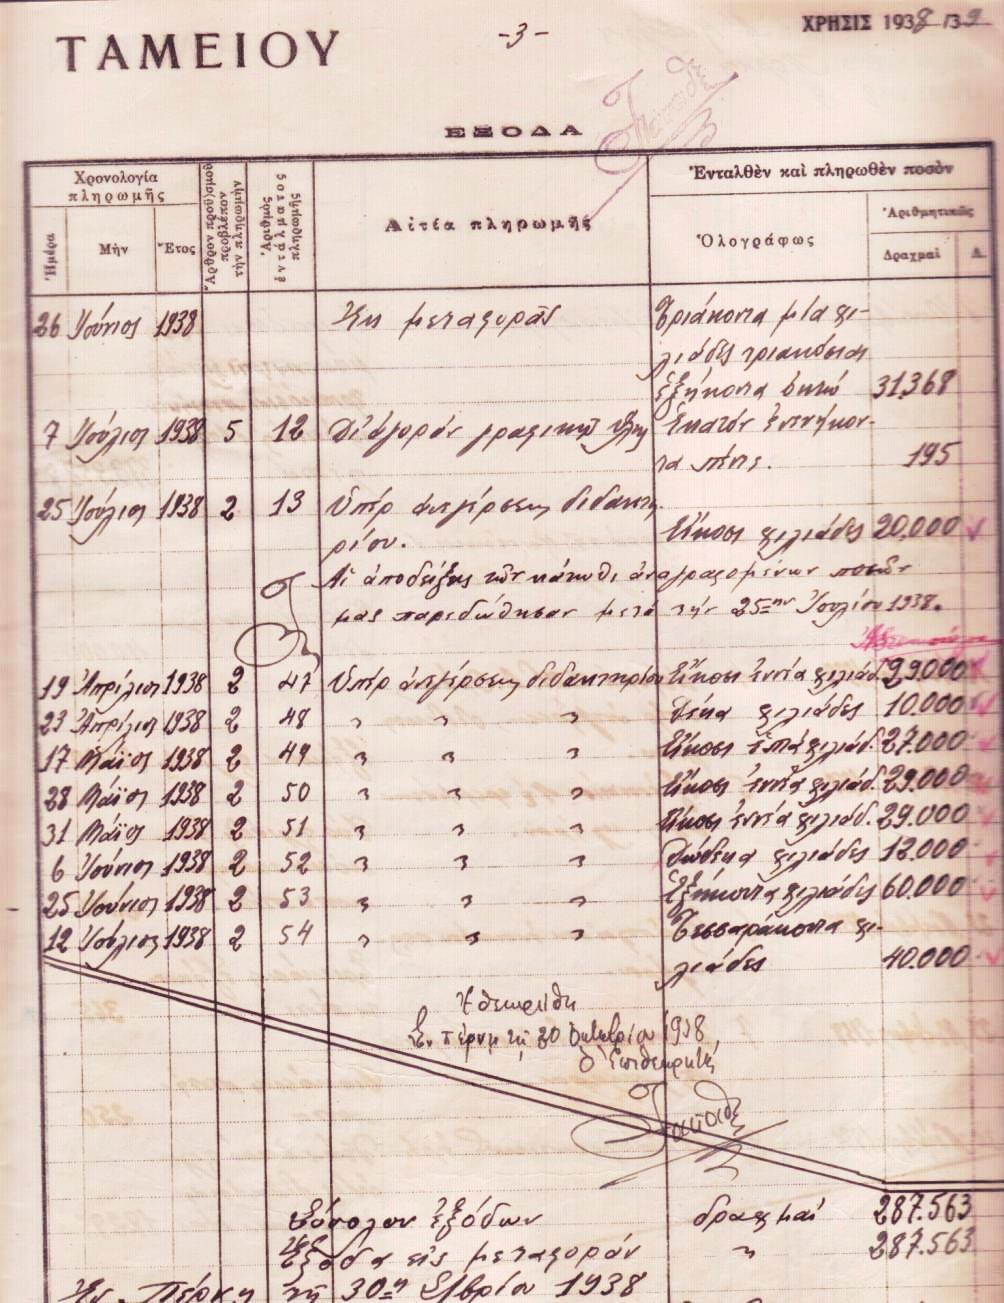 ΤΑΜΕΙΟΥ
-3-
ΧΡΗΣΙΣ 1938/39
ΕΞΟΔΑ
Χρονολογία πληρωμῆς
Ἡμέρα Μὴν Ἔτος
Ἄρθρον προϋ/σμοῦ προβλέπον τὴν πληρωμὴν
Ἀριθμὸς ἐντάλματος πληρωμῆς
Αἰτία πληρωμῆς
Ἐνταλθὲν καὶ πληρωθὲν ποσὸν
Ὁλογράφως
Ἀριθμητικῶς
Δραχμαὶ Λ.
26 Ἰούνιος 1938 Ἐκ μεταφορᾶς Τριάκοντα μία χι-
λιάδες τριακόσιαι
ἑξήκοντα ὀκτώ 31,368
7 Ἰούλιος 1938 5 12 Δι' ἀγορὰν γραφικῆς ὕλης Ἑκατὸν ἐνενήκον-
τα πέντε. 195
25 Ἰούλιος 1938 2 13 Ὑπὲρ ἀνεγέρσεως διδακτη
ρίου. Εἴκοσι χιλιάδες 20.000
Αἱ ἀποδείξεις τῶν κάτωθι ἀναγραφομένων ποσῶν
μας παρεδώθησαν μετὰ τὴν 25ην Ἰουλίου 1938.
19 Ἀπρίλιος 1938 2 47 Ὑπὲρ ἀνεγέρσεως διδακτηρίου Εἴκοσι ἐννέα χιλιάδ. 29.000
23 Ἀπρίλιος 1938 2 48 " " " Δέκα χιλιάδες 10.000
17 Μάϊος 1938 2 49 " " " Εἴκοσι ἑπτὰ χιλιάδ. 27.000
28 Μάϊος 1938 2 50 " " " Εἴκοσι ἐννέα χιλιάδ. 29.000
31 Μάϊος 1938 2 51 " " " Εἴκοσι ἐννέα χιλιάδ. 29.000
6 Ἰούνιος 1938 2 52 " " " Δώδεκα χιλιάδες 12.000
25 Ἰούνιος 1938 2 53 " " " Ἑξήκοντα χιλιάδες 60.000
12 Ἰούλιος 1938 2 54 " " " Τεσσαράκοντα χι-
λιάδες 40.000
Ἐθεωρήθη
Ἐν τῇ 30 Ὀκτωβρίου 1938,
Ὁ Ἐπιθεωρητής
Σύνολον ἐξόδων δραχμαὶ 287.563
Ἔξοδα εἰς μεταφορὰν " 287.563
Ἐν τῇ 30ῇ 1938